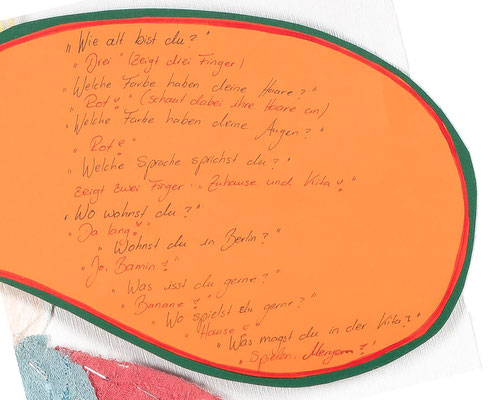 „Wie alt bist du?"
„Drei" (zeigt drei Finger)
„Welche Farbe haben deine Haare?"
„Rot!" (schaut dabei ihre Haare an)
„Welche Farbe haben deine Augen?"
„Rot!"
„Welche Sprache sprichst du?"
zeigt zwei Finger „Zuhause und Kita!"
„Wo wohnst du?"
„Da lang!"
„Wohnst du in Berlin?"
„Ja, Bamin!"
„Was isst du gerne?"
„Banane!"
„Wo spielst du gerne?"
„Hause"
„Was magst du in der Kita?"
„Spielen, Meryem!"